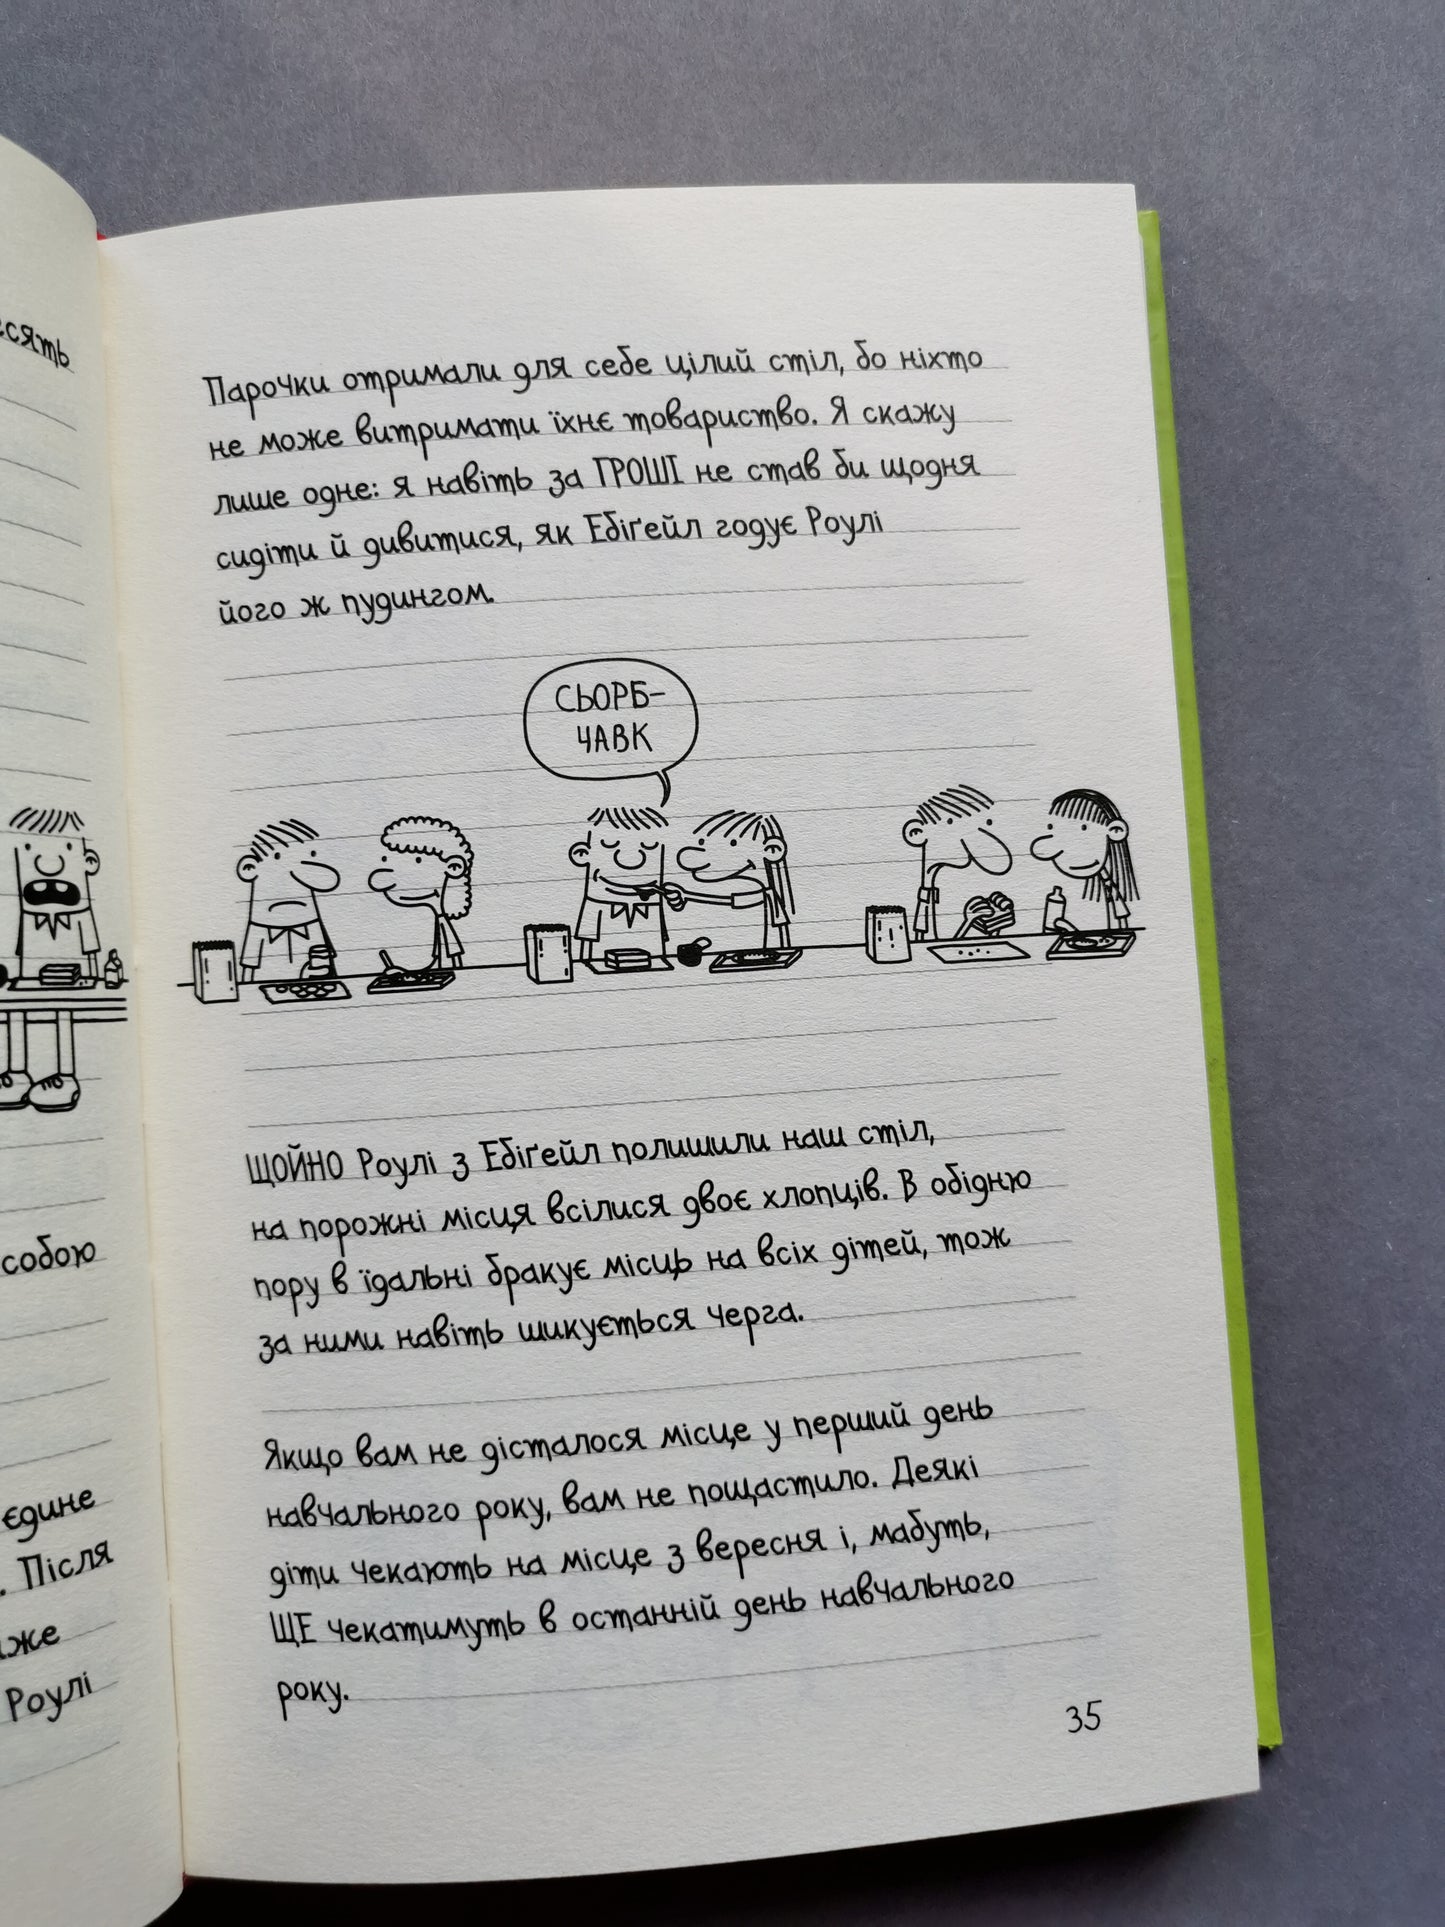 собою
єдине
. Після
Роулі
Парочки отримали для себе цілий стіл, бо ніхто
не може витримати їхнє товариство. Я скажу
лише одне: я навіть за ГРОШІ не став би щодня
сидіти й дивитися, як Ебіґейл годує Роулі
його ж пудингом.
СЬОРБ-
ЧАВК
ЩОЙНО Роулі з Ебіґейл полишили наш стіл,
на порожні місця всілися двоє хлопців. В обідню
пору в їдальні бракує місць на всіх дітей, тож
за ними навіть шикується черга.
Якщо вам не дісталося місце у перший день
навчального року, вам не пощастило. Деякі
діти чекають на місце з вересня і, мабуть,
ЩЕ чекатимуть в останній день навчального
року.
35